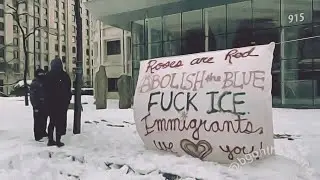 915
Roses are Red
ABOLISH the BLUE
FUCK ICE
Immigrants,
We ♡ you